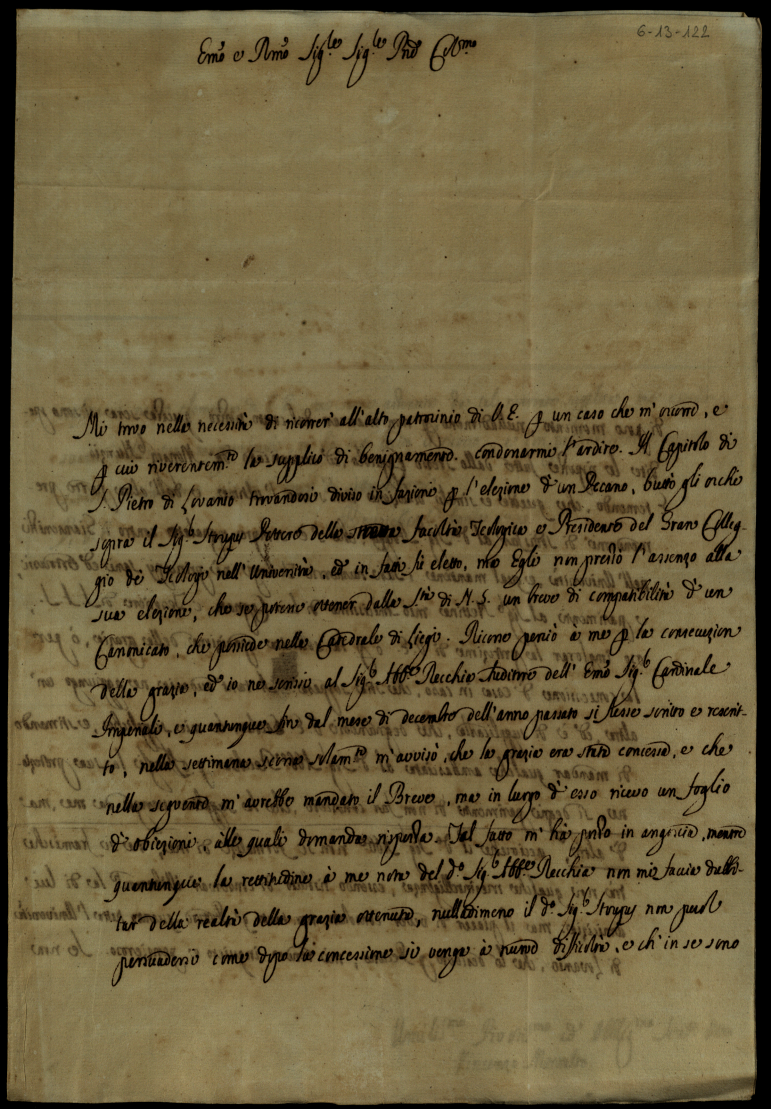 6-13-122
Emō e Rmō Sig.re Sig.re Pnē Col.mo
Mi trovo nella necessità di ricorrer' all'alto patrocinio di V.E. p un caso che m'occorre, e
p cui riverentem.te la supplico di benignamente condonarmi l'ardire. Il Capitolo di
S. Pietro di Lovanio trovandosi diviso in fazioni p l'elezione d'un Decano, buttò gli occhi
sopra il Sig.r Strouguy Dottore della facoltà Teologica e Presidente del Gran Colleg-
gio de Teologi nell'Università, ed in fatti fù eletto, ma Egli non prestò l'assenzo alla
sua elezione, che se potesse ottener dalla S.tà di N.S. un breve di compatibilità d'un
Canonicato, che possiede nella Catedrale di Liegi. Ricorse perciò à me p la consecuzion
della grazia, ed io ne scrissi al Sig.r Abb.e Recchia Auditore dell' Emō Sig.r Cardinale
Imperiali, e quantunque fin dal mese di decembre dell'anno passato si stesse scritto e rescrit-
to, nella settimana scorsa solam.te m'avvisò, che la grazia era stata concessa, e che
nella seguente m'avrebbe mandato il Breve, ma in luogo d'esso ricevo un foglio
d'obiezioni, alle quali domanda risposta. Tal fatto m'hà posto in angoscia, mentre
quantunque la rettitudine à me nota del d.o Sig.r Abb.e Recchia non mi faccia dubbi-
tar della realtà della grazia ottenuta, nulladimeno il d.o Sig.r Strouguy non puol
persuadersi come dopo la concessione si venga à nuove difficoltà, e ch'in se sono